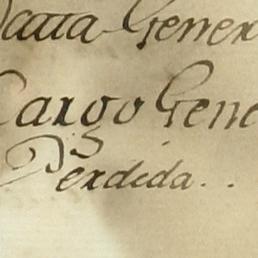 Data Gener
Cargo Gene
Perdida..